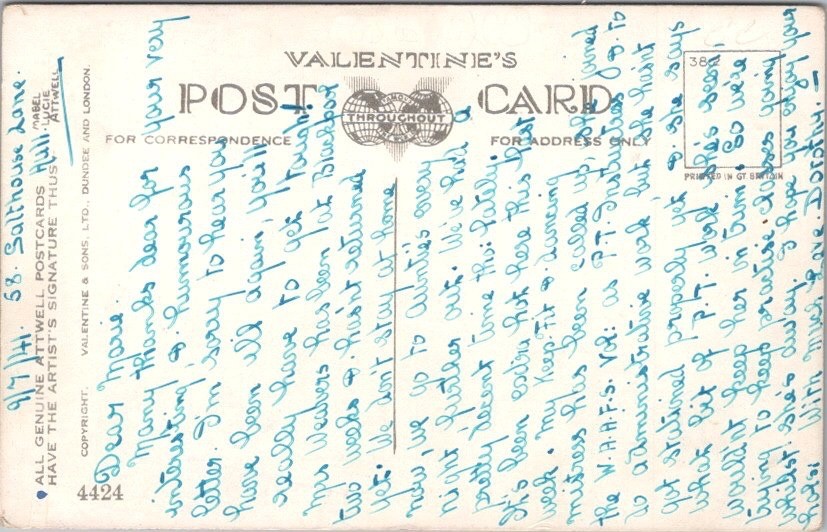 VALENTINE'S
POST CARD
FAMOUS
THROUGHOUT
FOR CORRESPONDENCE
FOR ADDRESS ONLY
PRINTED IN GT BRITAIN
4424
COPYRIGHT. VALENTINE & SONS, LTD., DUNDEE AND LONDON.
ALL GENUINE ATTWELL POSTCARDS
HAVE THE ARTIST'S SIGNATURE THUS
MABEL
LUCIE
ATTWELL
9/7/41. 58. Salthouse Lane.
Hull.
Dear Marie.
Many thanks dear for your very
interesting & humourous
letter. I'm sorry to hear you
have been ill again, you'll
really have to get tough!
Mrs Weavers has been at Blackpool
two weeks & hasn't returned
yet. We don't stay at home
now, we go to Aunties every
night further out. We've had a
pretty decent time tho' lately.
It's been extra hot here this last
week. My Keep-Fit & dancing
mistress has been called up, she joined
the W.A.A.F.S. Vol: as P.T. Instructress & to
do administrative work but she hasn't
got stationed properly yet & she says
what bit of P.T. work she's seen,
wouldn't keep her in trim. So we're
trying to keep practise classes going
whilst she's away. I hope you enjoy your
hols. With much Love. Dorothy.